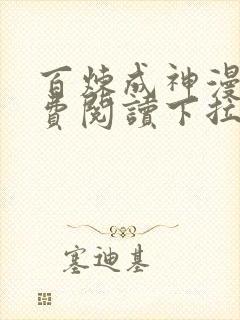 百炼成神漫
费阅讀下拉
塞迪基